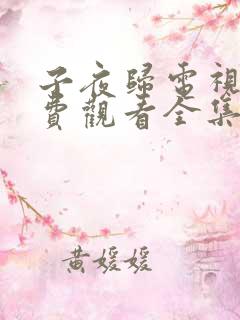 子夜歸電視
費觀看全集
黃媛媛